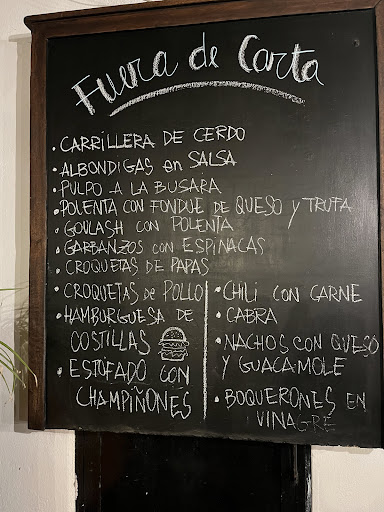 Fuera de Carta
• CARRILLERA DE CERDO
• ALBONDIGAS en SALSA
• PULPO A LA BUSARA
• POLENTA CON FONDUE DE QUESO y TRUFA
• GOULASH CON POLENTA
• GARBANZOS CON ESPINACAS
• CROQUETAS DE PAPAS
• CROQUETAS de POLLO
• HAMBURGUESA DE
COSTILLAS
• ESTOFADO CON
CHAMPIÑONES
• CHILI CON CARNE
• CABRA
• NACHOS CON QUESO
Y GUACAMOLE
• BOQUERONES EN
VINAGRE